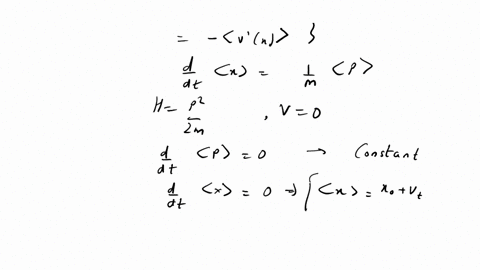 = -<v'(x)> }
d/dt <x> = 1/m <P>
H = P²/2m , V = 0
d/dt <P> = 0 → Constant
d/dt <x> = 0 ⇒ { <x> = x₀ + v_t